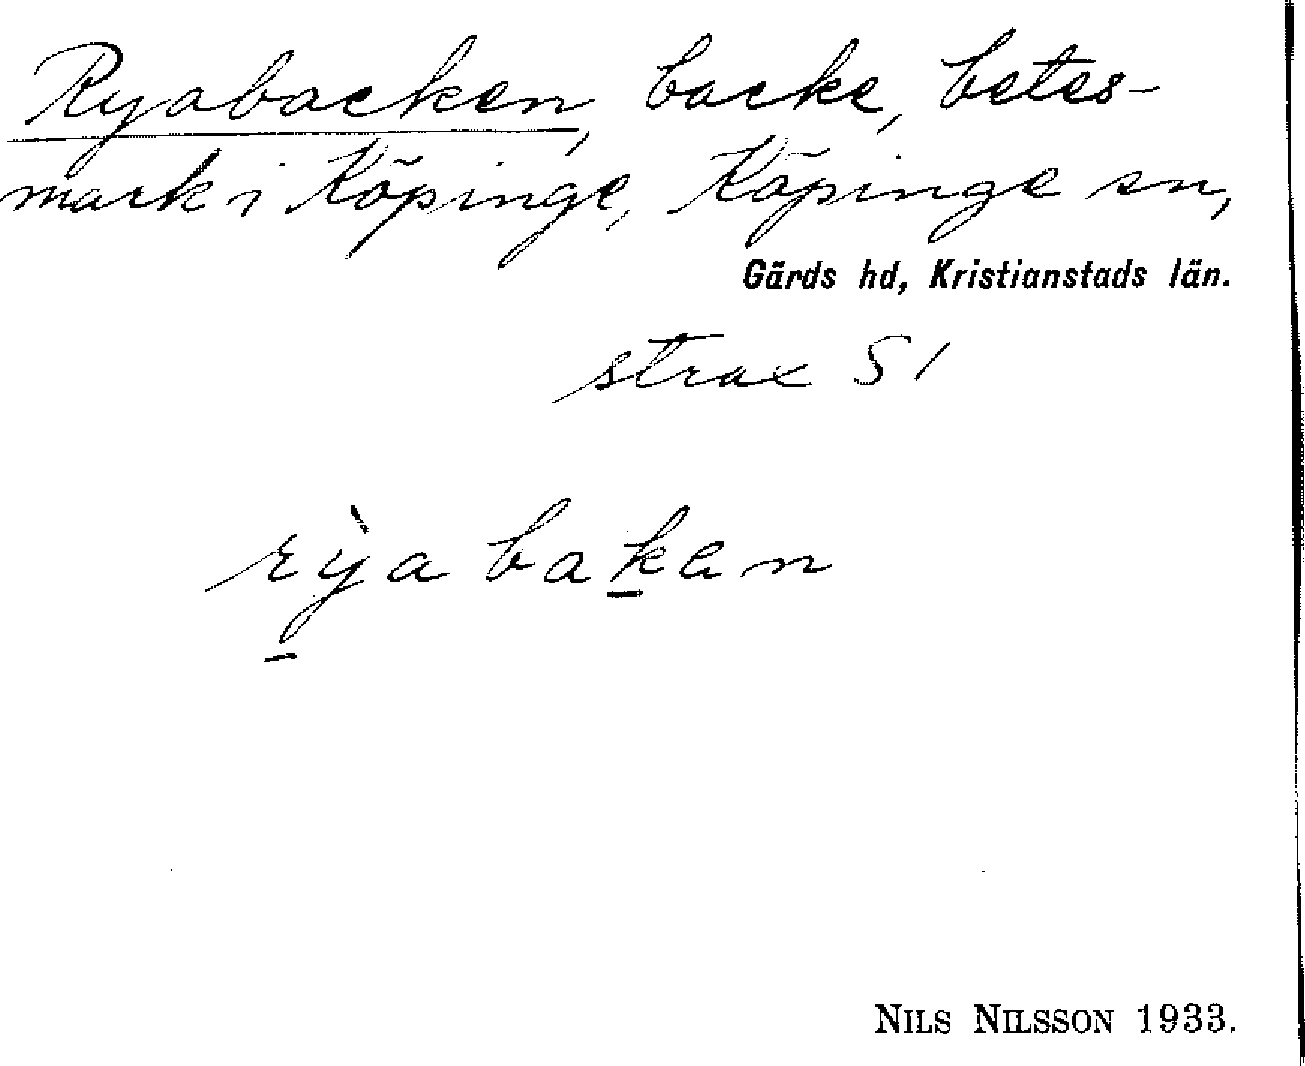 Ryabacken, backe, betes-
mark i Köpinge, Köpinge sn,
Gärds hd, Kristianstads län.
strax S /
rỳabakan
NILS NILSSON 1933.